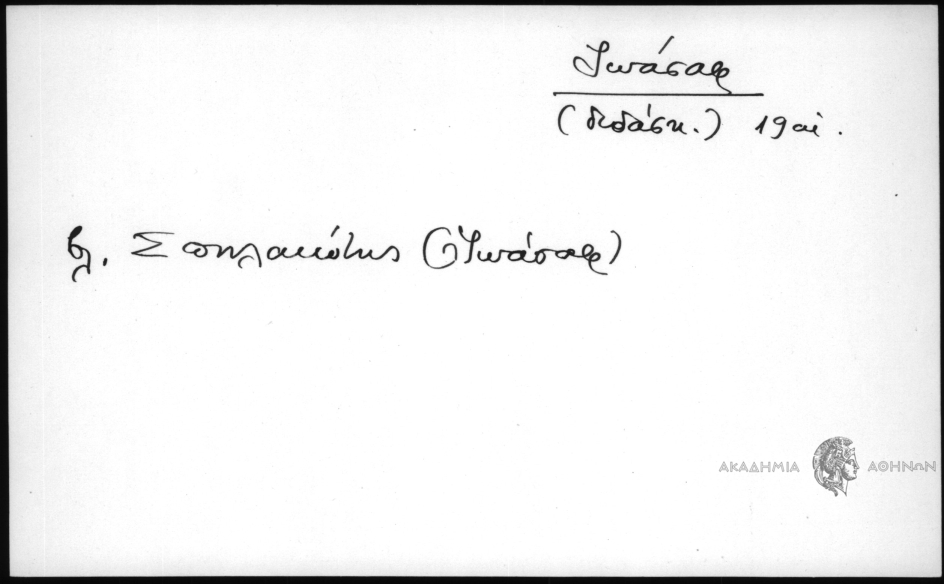 Ἰωάσαφ
(διδάσκ.) 19 αἰ.
βλ. Σπηλαιώτης (Ἰωάσαφ)
ΑΚΑΔΗΜΙΑ ΑΘΗΝΩΝ